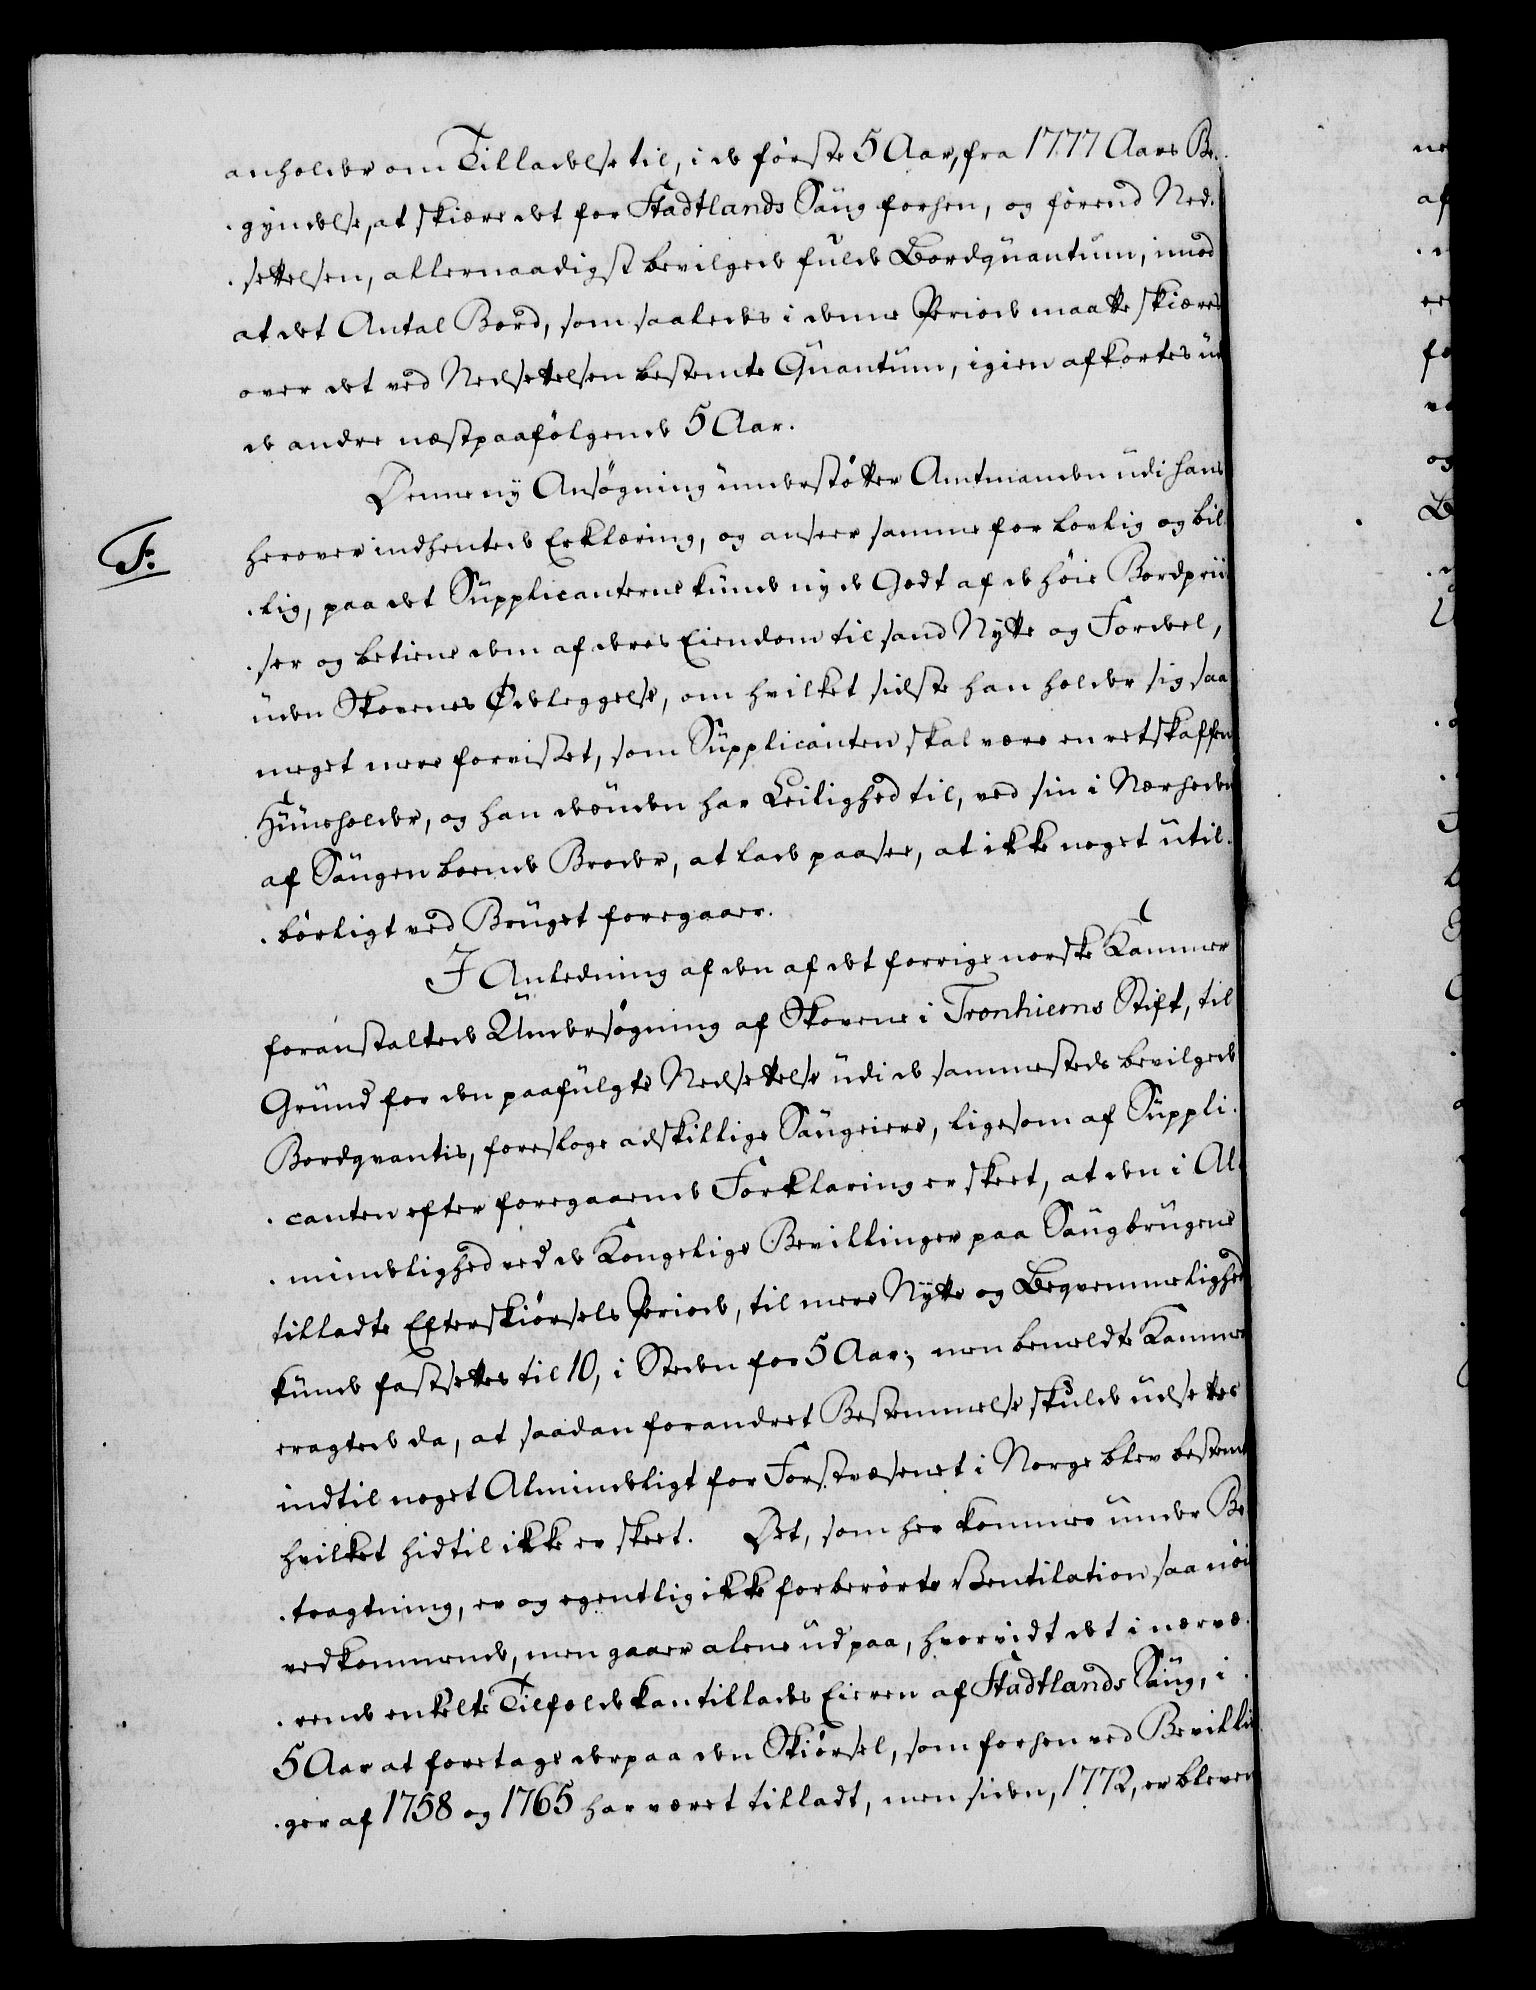 anholder om Tilladelse til, i de første 5 Aar, fra 1777 Aars Be-
-gyndelse, at skiære det for Stadtlands Saug forhen, og førend Ned-
-settelsen, allernaadigst bevilgede fulde Bordquantum, imod
at det Antal Bord, som saaledes i denne Periode maatte skiæres
over det ved Nedsettelsen bestemte Quantum, igien afkortes ud
de andre næstpaafølgende 5 Aar.
Denne ny Ansøgning understøtter Amtmanden udi hans
F.
herover indhentede Erklæring, og anseer samme for lovlig og bil-
-lig, paa det Supplicanterne kunde nyde Godt af de høie Bordprii-
-ser og betiene dem af deres Eiendom til sand Nytte og Fordeel,
uden Skovenes Ødeleggelse, om hvilket sidste han holder sig saa
meget mere forvisset, som Supplicanten skal være en retskaffen
Huusholder, og han desuden har Leilighed til, ved sin i Nærheden
af Saugen boende Broder, at lade paasee, at ikke noget util-
-børligt ved Bruget foregaaer.
I Anledning af den af det forrige norske Kammer
foranstaltede Undersøgning af Skovene i Tronhiems Stift, til
Grund for den paafulgte Nedsettelse udi de sammesteds bevilgede
Bordqvantis, foresloge adskillige Saugeiere, ligesom af Suppli-
-canten efter foregaaende Forklaring er skeet, at den i Al-
-mindelighed ved de Kongelige Bevillinger paa Saugbrugene
tilladte Efterskiørsels Periode, til mere Nytte og Beqvemmelighed
kunde fastsettes til 10, i Steden for 5 Aar; men bemeldte Kammer
eragtede da, at saadan forandret Bestemmelse skulde udsettes
indtil noget Almindeligt for Forstvæsenet i Norge blev bestemt
hvilket hidtil ikke er skeet. Det, som her kommer under Be-
-tragtning, er og egentlig ikke forberørte Ventilation saa nøie
vedkommende, men gaaer alene ud paa, hvorvidt det i nærvæ-
-rende enkelte Tilfælde kan tillades Eieren af Stadtlands Saug, i
5 Aar at foretage derpaa den Skiørsel, som forhen ved Bevillin-
-ger af 1758 og 1765 har været tilladt, men siden, 1772, er bleven